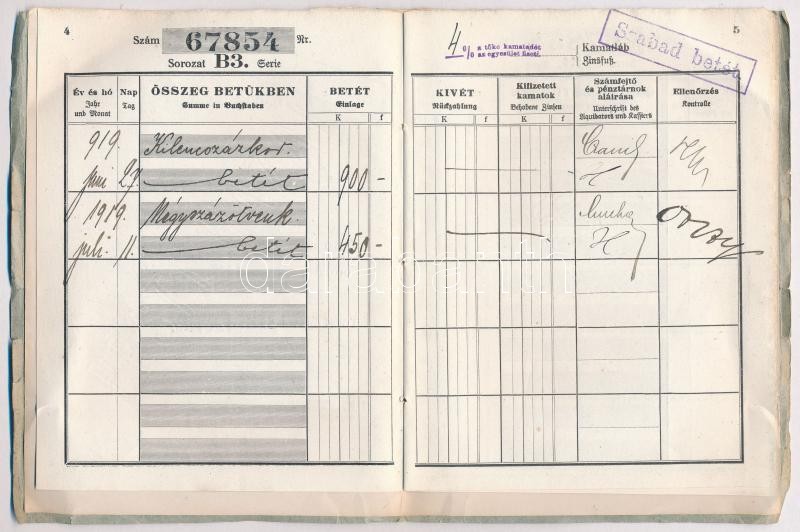 4
Szám 67854 Nr.
Sorozat B3. Serie
Év és hó
Jahr
und Monat
Nap
Tag
ÖSSZEG BETŰKBEN
Summe in Buchstaben
BETÉT
Einlage
K f
919. Kilencszázkor.
juni 27. betét 900 –
1919. Négyszázötvenk.
juli. 11. betét 450 –
5
4 % a tőke kamatadót
az egyesület fizeti.
Kamatláb
Zinsfuß.
Szabad betét
KIVÉT
Rückzahlung
K f
Kifizetett
kamatok
Behobene Zinsen
K f
Számfejtő
és pénztárnok
aláírása
Unterschrift des
Liquidators und Kassiers
Ellenőrzés
Kontrolle
darabanth